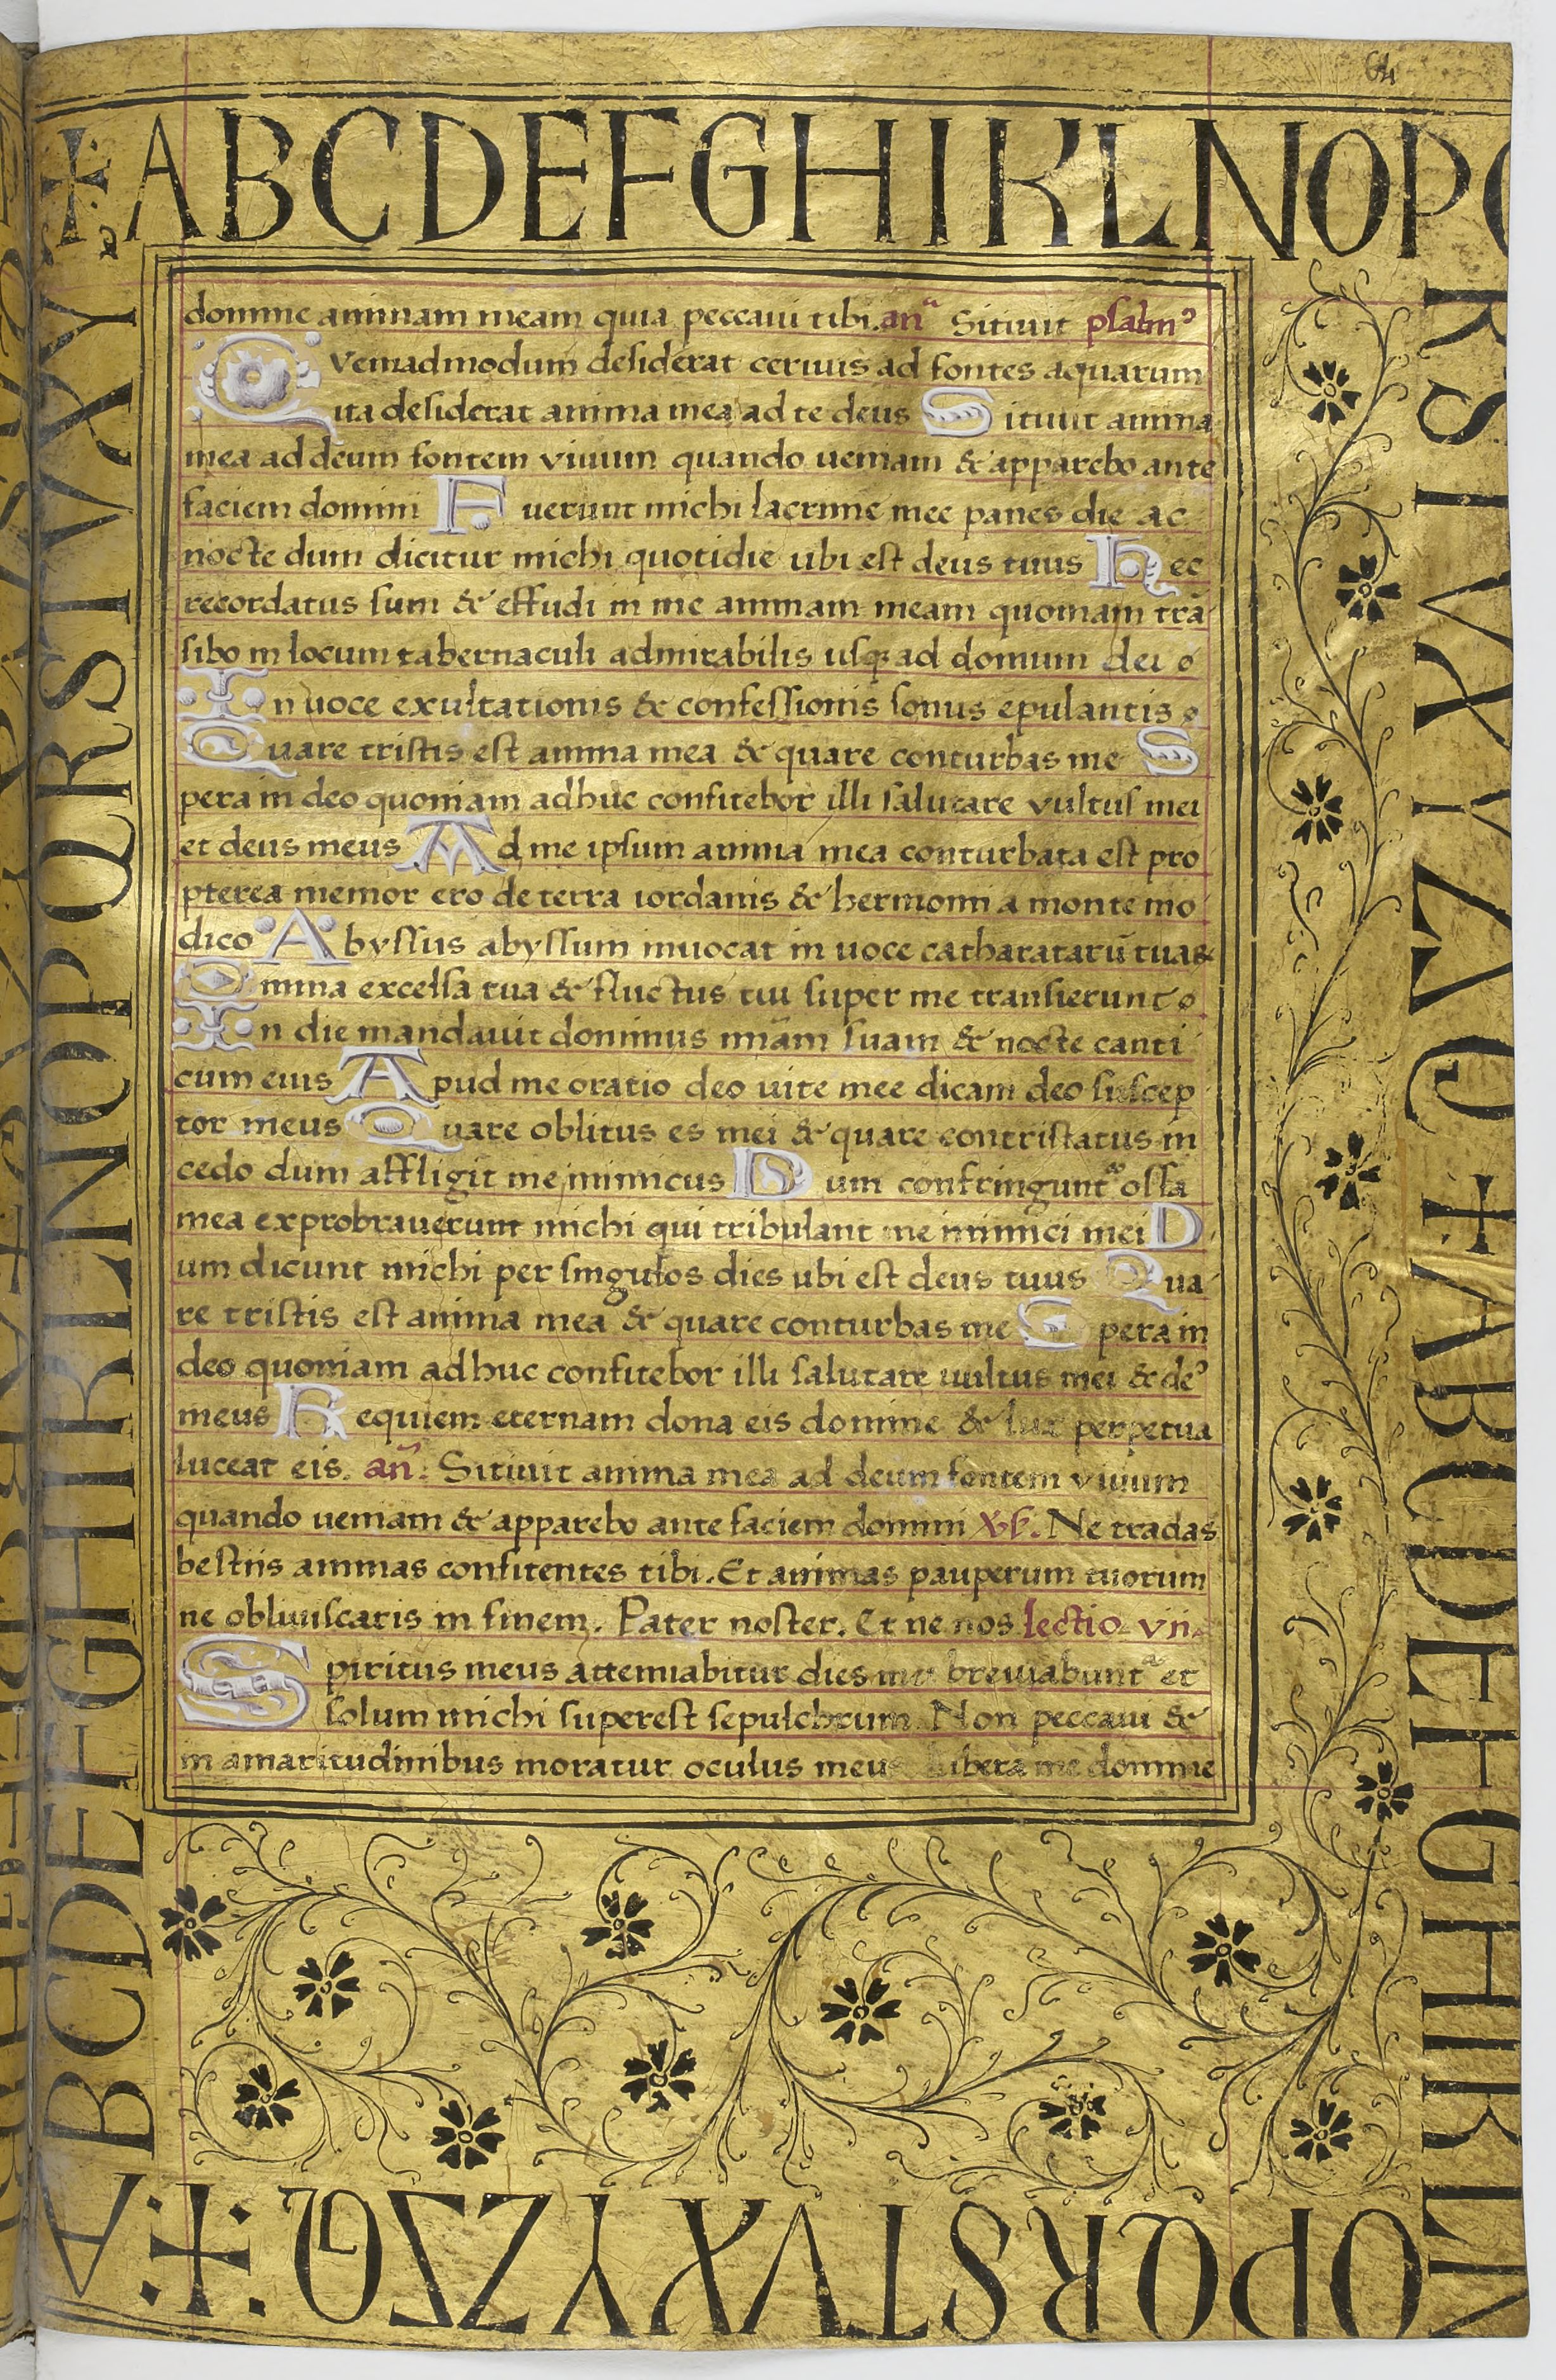 64
+ABCDEFGHIKLNOPQ
RSTVXYZ + ABCDEFGHIKLN
OPQRSTVXYZ +
ABCDEFGHIKLNOPQRSTVXY
domine animam meam quia peccaui tibi. anᵃ Sitiuit psalmꝰ
Quemadmodum desiderat ceruus ad fontes aquarum
ita desiderat anima mea ad te deus Sitiuit anima
mea ad deum fontem viuum quando ueniam & apparebo ante
faciem domini Fuerunt michi lacrime mee panes die ac
nocte dum dicitur michi quotidie ubi est deus tuus Hec
recordatus sum & effudi in me animam meam quoniam trā
sibo in locum tabernaculi admirabilis usqȝ ad domum dei o
In uoce exultationis & confessionis sonus epulantis o
Quare tristis est anima mea & quare conturbas me S
pera in deo quoniam adhuc confitebor illi salutare vultus mei
et deus meus Ad me ipsum anima mea conturbata est pro
pterea memor ero de terra iordanis & hermonii a monte mo
dico Abyssus abyssum inuocat in uoce catharatarū tuaꝝ
Omnia excelsa tua & fluctus tui super me transierunt o
In die mandauit dominus miām suam & nocte canti
cum eius Apud me oratio deo uite mee dicam deo suscep
tor meus Quare oblitus es mei & quare contristatus in
cedo dum affligit me inimicus Dum confringuntᵘʳ ossa
mea exprobrauerunt michi qui tribulant me inimici mei D
um dicunt michi per singulos dies ubi est deus tuus Qua
re tristis est anima mea & quare conturbas me Spera in
deo quoniam adhuc confitebor illi salutare uultus mei & deꝰ
meus Requiem eternam dona eis domine & lux perpetua
luceat eis. an̄. Sitiuit anima mea ad deum fontem viuum
quando ueniam & apparebo ante faciem domini Ne tradas
bestiis animas confitentes tibi. Et animas pauperum tuorum
ne obliuiscaris in finem. Pater noster. Et ne nos lectio vii.
Spiritus meus attenuabitur dies mei breuiabuntᵘʳ et
solum michi superest sepulchrum. Non peccaui &
in amaritudinibus moratur oculus meus libera me domine